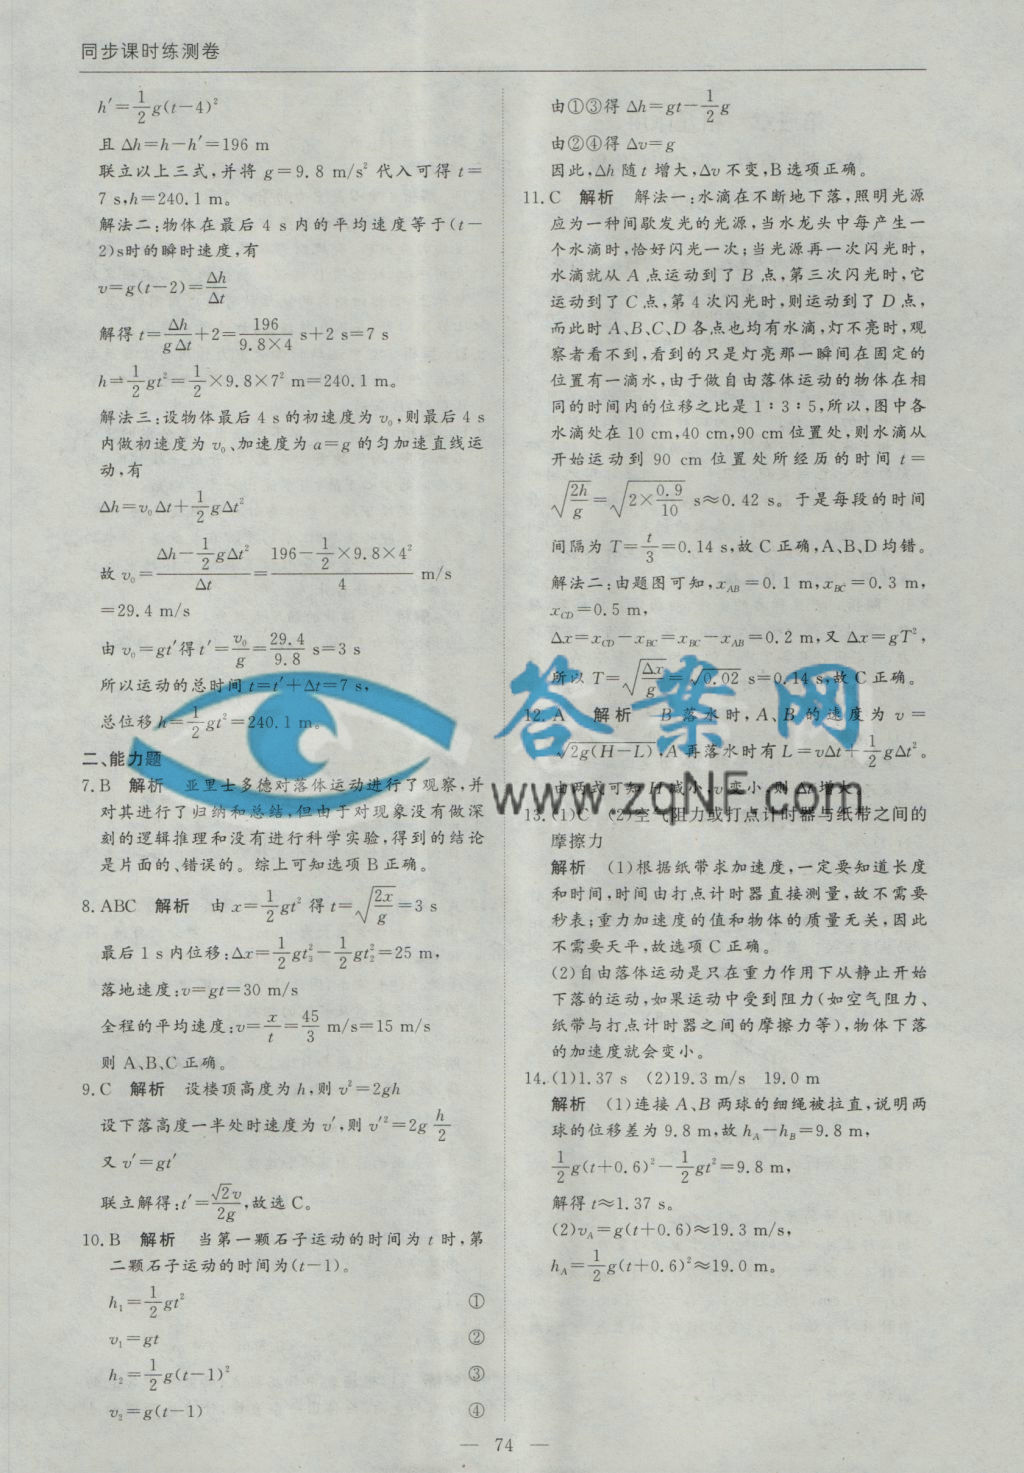 同步课时练测卷
h′=1/2g(t-4)²
且 Δh=h-h′=196 m
联立以上三式,并将 g=9.8 m/s² 代入可得 t=
7 s,h=240.1 m。
解法二:物体在最后 4 s 内的平均速度等于(t-
2)s时的瞬时速度,有
v=g(t-2)=Δh/Δt
解得 t=Δh/gΔt+2=196/9.8×4 s+2 s=7 s
h=1/2gt²=1/2×9.8×7² m=240.1 m。
解法三:设物体最后 4 s 的初速度为 v₀,则最后 4 s
内做初速度为 v₀、加速度为 a=g 的匀加速直线运
动,有
Δh=v₀Δt+1/2gΔt²
故 v₀=(Δh-1/2gΔt²)/Δt=(196-1/2×9.8×4²)/4 m/s
=29.4 m/s
由 v₀=gt′得 t′=v₀/g=29.4/9.8 s=3 s
所以运动的总时间 t=t′+Δt=7 s,
总位移 h=1/2gt²=240.1 m。
二、能力题
7. B 解析 亚里士多德对落体运动进行了观察,并
对其进行了归纳和总结,但由于对现象没有做深
刻的逻辑推理和没有进行科学实验,得到的结论
是片面的、错误的。综上可知选项 B 正确。
8. ABC 解析 由 x=1/2gt² 得 t=√(2x/g)=3 s
最后 1 s 内位移:Δx=1/2gt₃²-1/2gt₂²=25 m,
落地速度:v=gt=30 m/s
全程的平均速度:v=x/t=45/3 m/s=15 m/s
则 A、B、C 正确。
9. C 解析 设楼顶高度为 h,则 v²=2gh
设下落高度一半处时速度为 v′,则 v′²=2g h/2
又 v′=gt′
联立解得:t′=√2v/2g,故选 C。
10. B 解析 当第一颗石子运动的时间为 t 时,第
二颗石子运动的时间为(t-1)。
h₁=1/2gt² ①
v₁=gt ②
h₂=1/2g(t-1)² ③
v₂=g(t-1) ④
由①③得 Δh=gt-1/2g
由②④得 Δv=g
因此,Δh 随 t 增大,Δv 不变,B 选项正确。
11. C 解析 解法一:水滴在不断地下落,照明光源
应为一种间歇发光的光源,当水龙头中每产生一
个水滴时,恰好闪光一次;当光源再一次闪光时,
水滴就从 A 点运动到了 B 点,第三次闪光时,它
运动到了 C 点,第 4 次闪光时,则运动到了 D 点,
而此时 A、B、C、D 各点也均有水滴,灯不亮时,观
察者看不到,看到的只是灯亮那一瞬间在固定的
位置有一滴水,由于做自由落体运动的物体在相
同的时间内的位移之比是 1∶3∶5,所以,图中各
水滴处在 10 cm,40 cm,90 cm 位置处,则水滴从
开始运动到 90 cm 位置处所经历的时间 t=
√(2h/g)=√(2×0.9/10) s≈0.42 s。于是每段的时间
间隔为 T=t/3=0.14 s,故 C 正确,A、B、D 均错。
解法二:由题图可知,x_AB=0.1 m,x_BC=0.3 m,
x_CD=0.5 m,
Δx=x_CD-x_BC=x_BC-x_AB=0.2 m,又 Δx=gT²,
所以 T=√(Δx/g)=√0.02 s=0.14 s,故 C 正确。
12. A 解析 B 落水时,A、B 的速度为 v=
√2g(H-L),A 再落水时有 L=vΔt+1/2gΔt²。
由两式可知 H 减小,v 变小,则 Δt 增大。
13. (1)C (2)空气阻力或打点计时器与纸带之间的
摩擦力
解析 (1)根据纸带求加速度,一定要知道长度
和时间,时间由打点计时器直接测量,故不需要
秒表;重力加速度的值和物体的质量无关,因此
不需要天平,故选项 C 正确。
(2)自由落体运动是只在重力作用下从静止开始
下落的运动,如果运动中受到阻力(如空气阻力、
纸带与打点计时器之间的摩擦力等),物体下落
的加速度就会变小。
14. (1)1.37 s (2)19.3 m/s 19.0 m
解析 (1)连接 A、B 两球的细绳被拉直,说明两
球的位移差为 9.8 m,故 h_A-h_B=9.8 m,
1/2g(t+0.6)²-1/2gt²=9.8 m,
解得 t≈1.37 s。
(2)v_A=g(t+0.6)≈19.3 m/s,
h_A=1/2g(t+0.6)²≈19.0 m。
答案网
www.zqNF.com
— 74 —